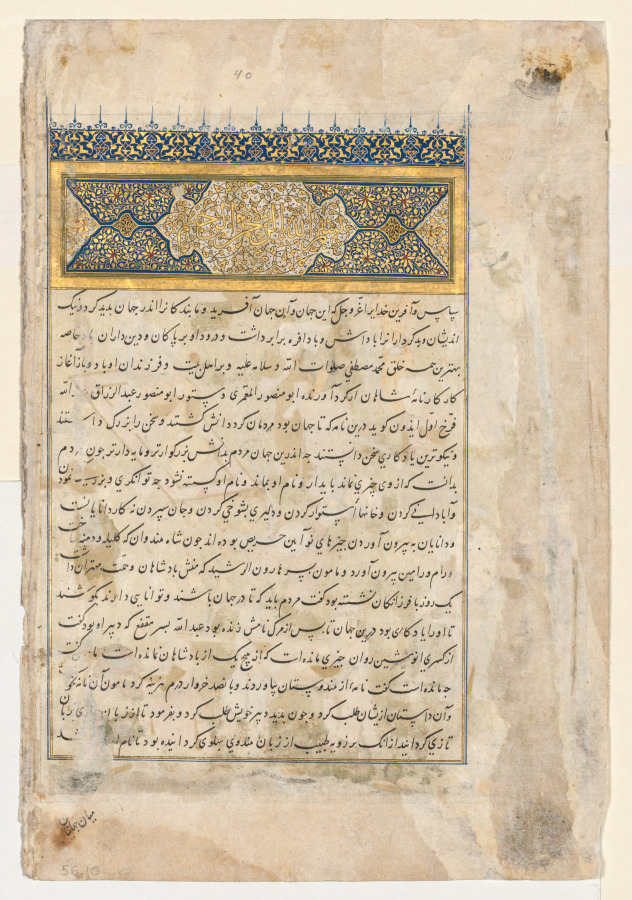 40
بسم الله الرحمن الرحیم
سپاس و آفرین خدایرا عز و جل که این جهان و آن جهان آفرید و ما بندگانرا اندر جهان بدید کرد و نیک
اندیشان و بدکردارانرا پاداش و بادافره برابر داشت و درود او بر پاکان و دین داران باد خاصه
بهترین همه خلق محمد مصطفی صلوات الله و سلامه علیه و بر اهل بیت و فرزندان او باد و باز آغاز
کار کارنامهٔ شاهان از گردآورنده ابومنصور المعمری دستور ابومنصور عبدالرزاق الله
فرخ اول ایدون گوید درین نامه که تا جهان بود مردمان گرد دانش گشتند و سخن را بزرگ داشتند
و نیکوترین یادگاری سخن دانستند چه اندرین جهان مردم بدانش بزرگوارتر و مایه‌دارتر چون مردم
بدانست که از وی چیزی نماند پایدار و نام او بماند و نام او گسسته نشود چه توانگری و
و آبادانی کردن و خانها استوار کردن و دلیری بشوخی کردن و جان سپردن نه کار دانایانست
و دانایان به بیرون آوردن چیزهای نو آیین حریص بوده‌اند چون شاه هندوان که کلیله و دمنه ساخت
و رام و رامین بیرون آورد و مامون پسر هارون الرشید که منش پادشاهان و همت مهتران داشت
یک روز با فرزانگان نشسته بود گفت مردم باید که تا در جهان باشند و توانایی دارند بکوشند
تا او را یادگاری بود درین جهان تا پس از مرگ نامش زنده بود عبدالله پسر مقفع که دبیر او بود گفت
از کسری انوشین روان چیزی مانده است که از هیچ یک از پادشاهان نمانده است مامون گفت
چه مانده است گفت نامه از هندوستان بیاوردند و پانصد خروار درم هزینه کرد مامون آن نامه بگون
و آن داستان ازیشان طلب کرد و چون بدید دبیر خویش طلب کرد و بفرمود تا از زبان زبان
تازی گردانید از آنک برزویه طبیب از زبان هندوی بپهلوی گردانیده بود تا نام شد
56.10